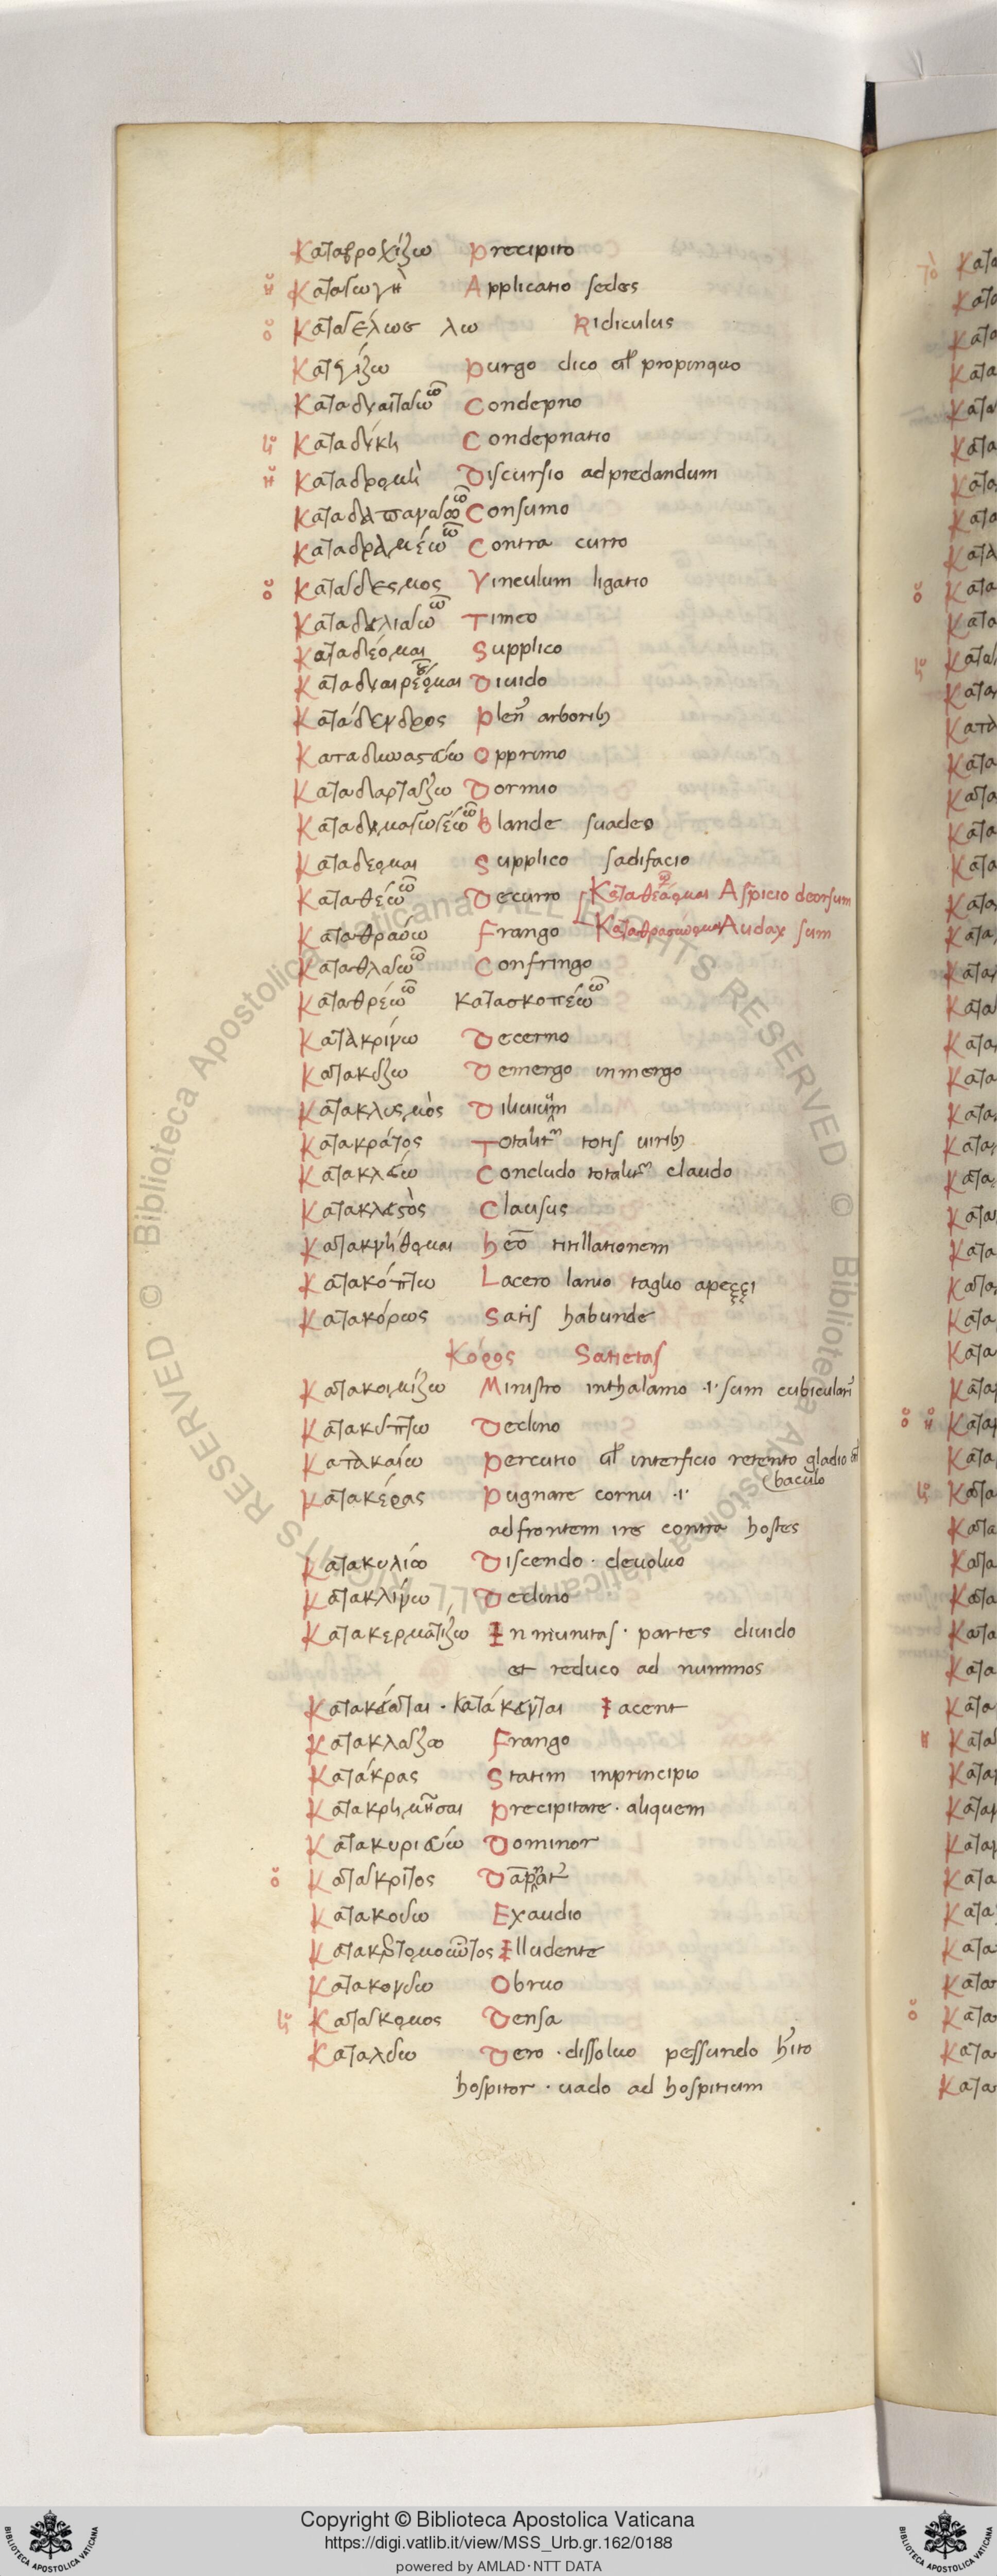 Καταβροχίζω Precipito
ἡ Καταγωγὴ Applicatio sedes
ὁ Καταγέλωσ λω Ridiculus
Κατγίζω Purgo dico propinquo
Καταδιαιτάω ῶ Condepno
ἡ Καταδίκη Condepnatio
ἡ Καταδρομὴ Discursio ad predandum
Καταδαπανάω ῶ Consumo
Καταδραμέω ῶ Contra curro
ὁ Κατάδεσμος Vinculum ligatio
Καταδειλιάω ῶ Timeo
Καταδέομαι Supplico
Καταδιαιρέομαι Diuido
Κατάδενδρος Plen᾽ arborib
Καταδυναστεύω Opprimo
Καταδαρτάζω Dormio
Καταδημαγωγέω ῶ Blande suadeo
Καταδεομαι Supplico sadifacio
Καταθέω ῶ Decurro Καταθεάομαι Aspicio deorsum
Καταθραύω Frango Καταθρασύομαι Audax sum
Καταθλάω ῶ Confringo
Καταθρέω ῶ Κατασκοπέω ῶ
Κατακρίνω Decerno
Demergo inmergo
Κατακλυσμὸς Diluuium
Κατακράτος Totalitm totis uirib
Κατακλείω Concludo totalitm claudo
Κατακλειστὸς Clausus
Κατακνήθομαι Heo titillationem
Κατακόπτω Lacero lanio taglio apeççi
Κατακόρως Satis habunde
Κόρος Satietas
Κατακοιμίζω Ministro inthalamo .i. sum cubiculari᾽
Κατακύπτω Declino
Κατακαίω Percutio interficio retento gladio
baculo
Κατακέρας Pugnare cornu .i.
adfrontem ire contra hostes
Κατακυλίω Discendo . deuoluo
Κατακλίνω Declino
Κατακερματίζω In minutas . partes diuido
et reduco ad nummos
Κατακέαται . Κατάκεινται Iacent
Κατακλάζω Frango
Κατάκρας Statim inprincipio
Κατακρημνῆσαι Precipitare . aliquem
Κατακυριεύω Dominor
ὁ Κατάκριτος
Κατακούω Exaudio
Illudente
Obruo
ἡ Κατάκομος Densa
Καταλύω Dero . dissoluo pessundo
hospitor . uado ad hospitium
Copyright © Biblioteca Apostolica Vaticana
https://digi.vatlib.it/view/MSS_Urb.gr.162/0188
powered by AMLAD·NTT DATA